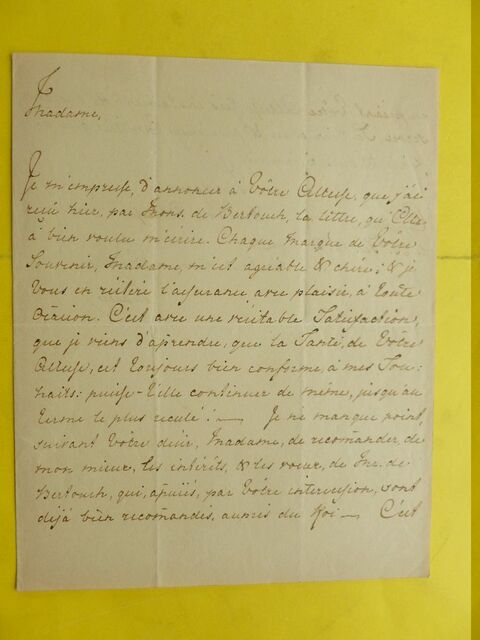 Madame,
Je m'empresse, d'annoncer à Vôtre Altesse, que j'ai
reçû hier, par Mons. de Bertouch, la lettre, qu'Elle
à bien voulu m'écrire. Chaque marque de Vôtre
Souvenir, Madame, m'est agréable & chère; & je
Vous en réitère l'assurance avec plaisir, à toute
occasion. C'est avec une véritable Satisfaction,
que je viens d'aprendre, que la Santé, de Vôtre
Altesse, est toujours bien conforme, à mes Sou-
haits: puisse-t'elle continuer de même, jusqu'au
terme le plus reculé! — Je ne manque point,
suivant Vôtre désir, Madame, de recomander, de
mon mieux, les intérêts, & les voeux, de Mr. de
Bertouch, qui, apuiés, par Vôtre intercession, sont
déjà bien recomandés, auprès du Roi — C'est